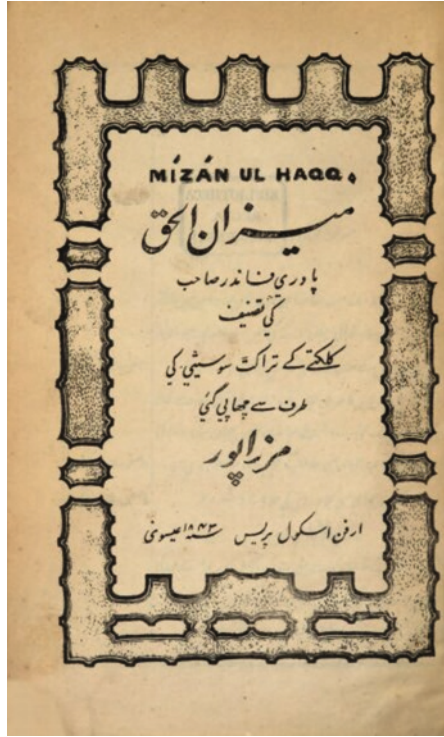 MÍZÁN UL HAQQ.
میزان الحق
پادري فاندر صاحب
کي تصنیف
کلکتے کے تراکت سوسیٹي کي
طرف سے چھاپي گئي
مرزاپور
ارفن اسکول پریس سنه ۱۸۴۳ عیسوي